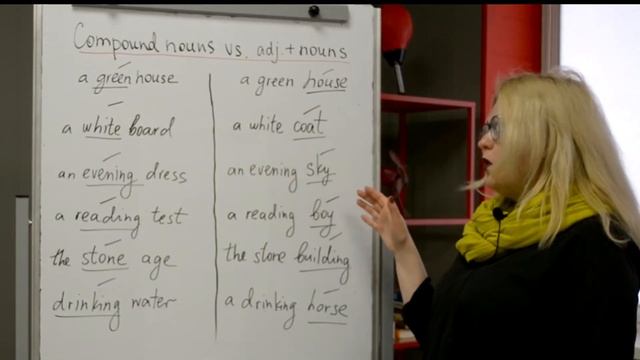 Compound nouns vs. adj. + nouns
a greenhouse
a green house
a white board
a white coat
an evening dress
an evening sky
a reading test
a reading boy
the stone age
the stone building
drinking water
a drinking horse